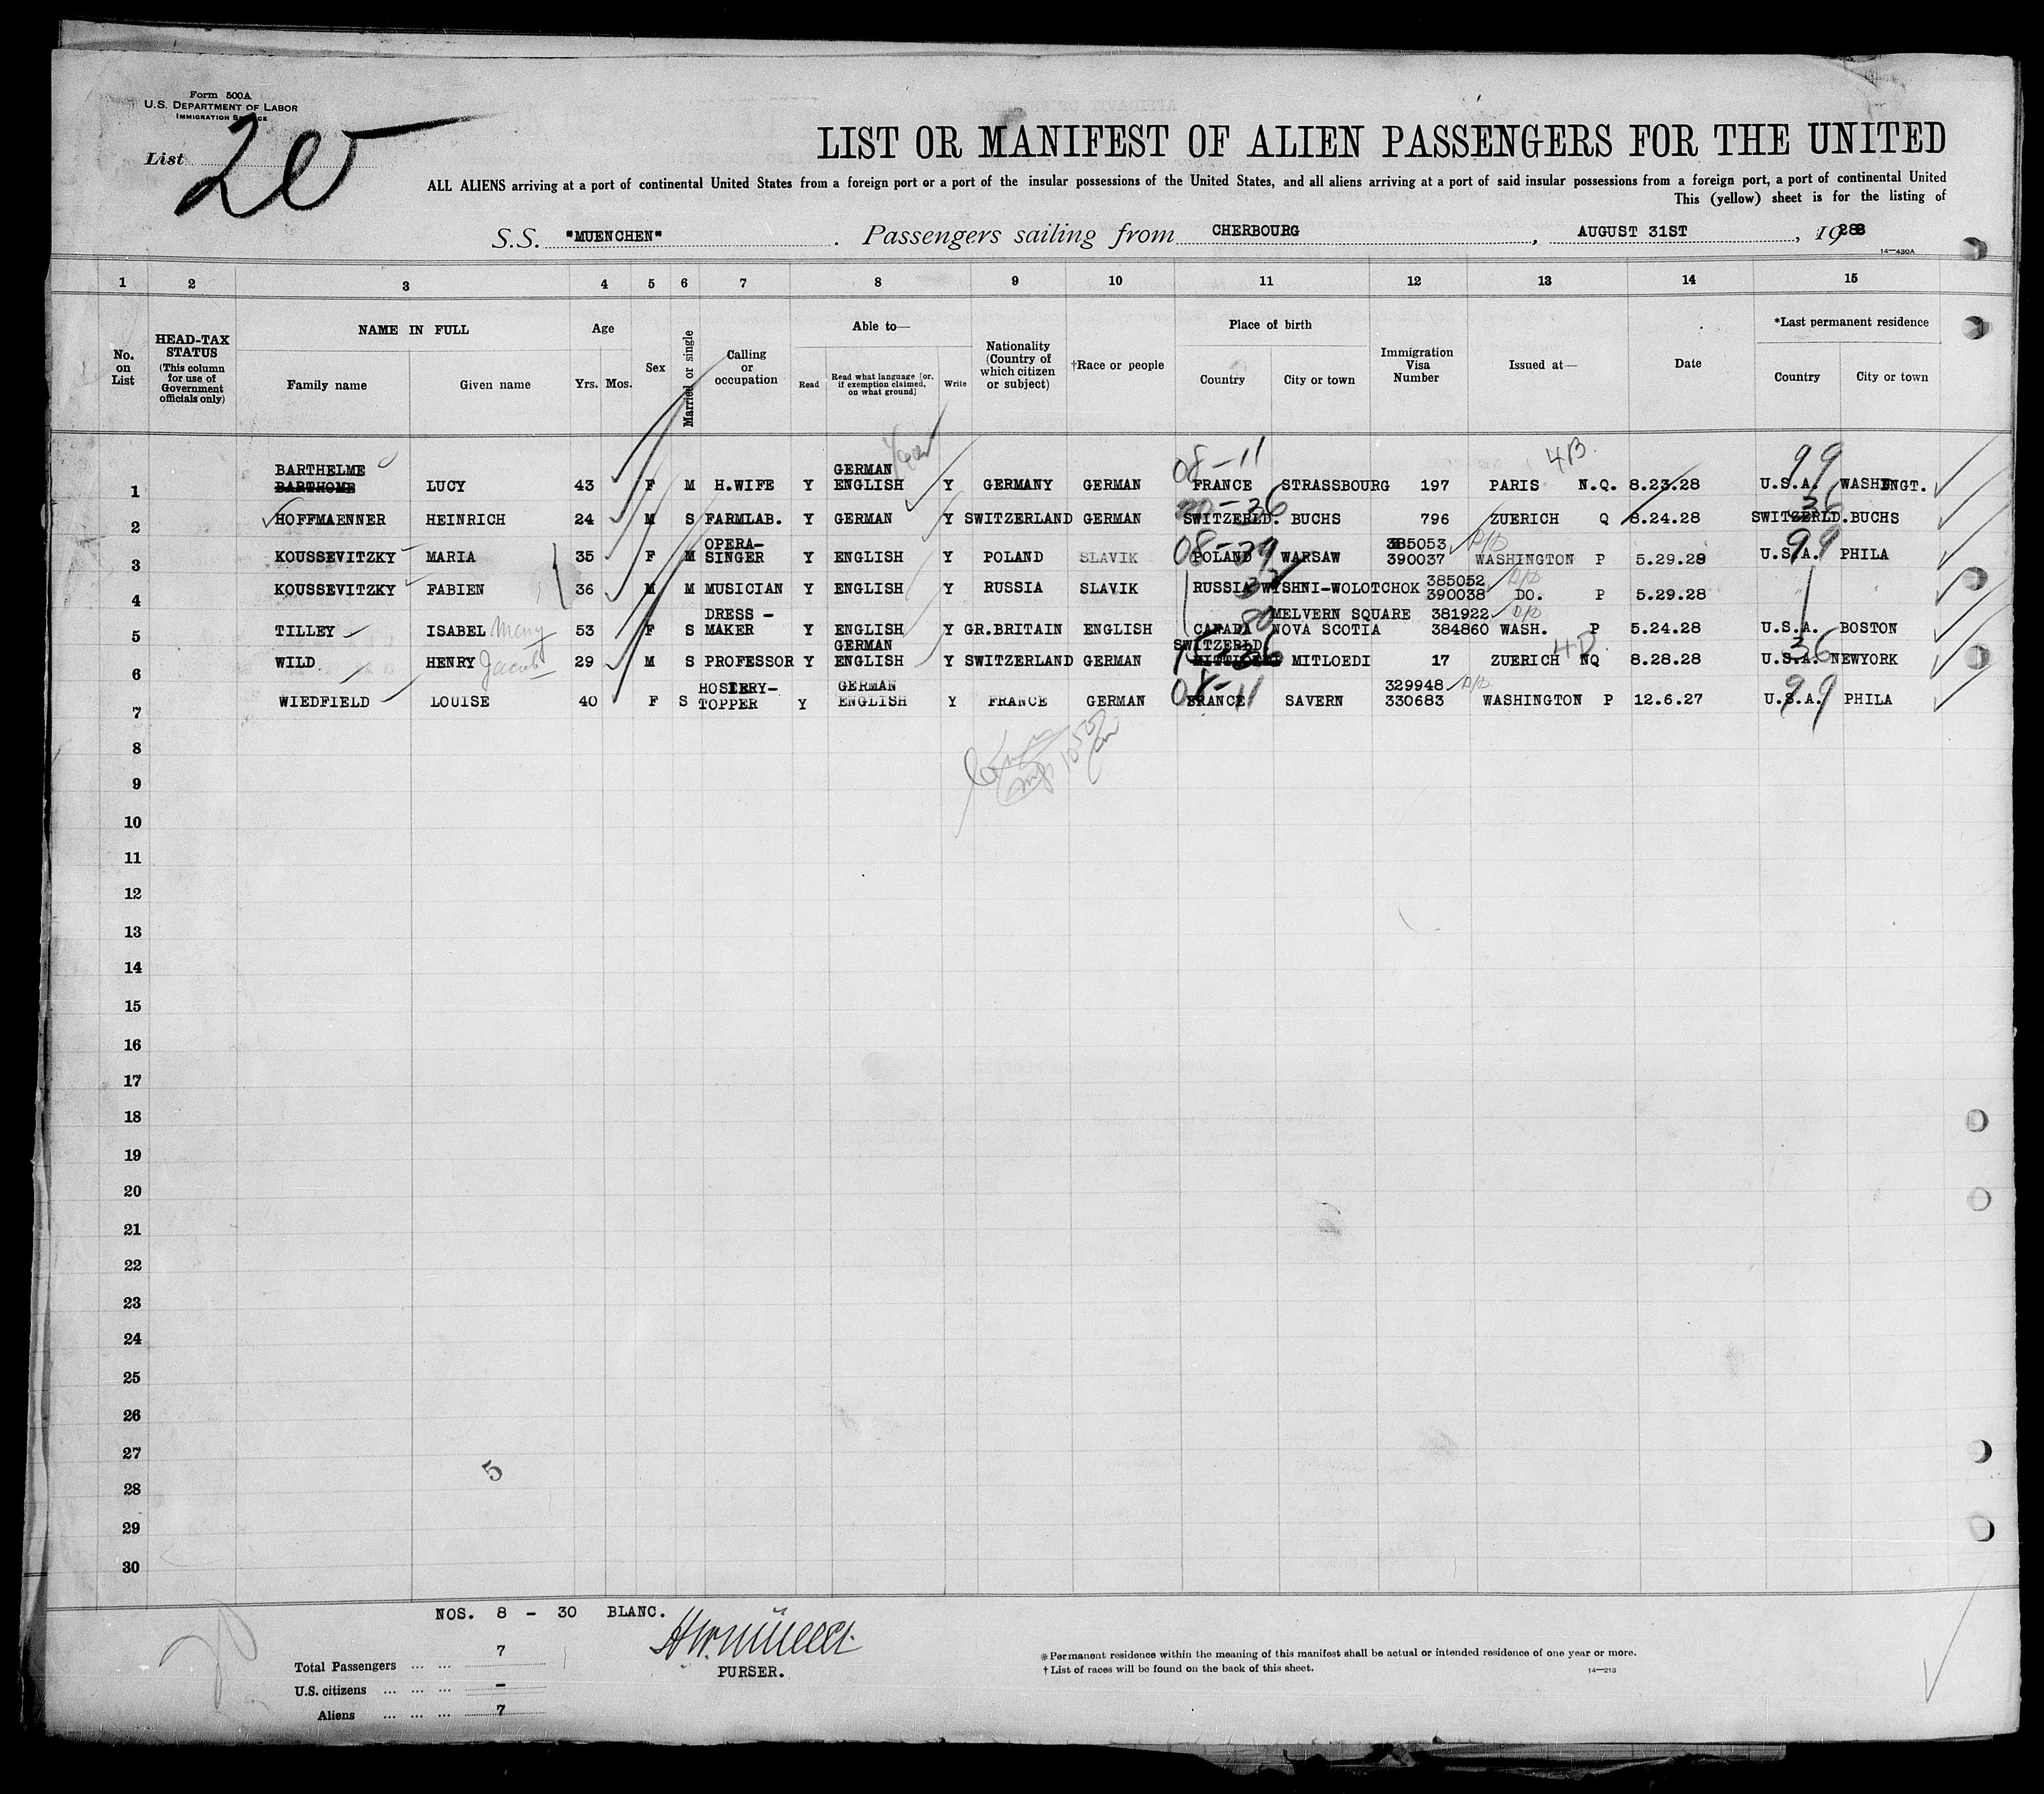 Form 500A
U.S. DEPARTMENT OF LABOR
IMMIGRATION SERVICE
List 20
LIST OR MANIFEST OF ALIEN PASSENGERS FOR THE UNITED
ALL ALIENS arriving at a port of continental United States from a foreign port or a port of the insular possessions of the United States, and all aliens arriving at a port of said insular possessions from a foreign port, a port of continental United
This (yellow) sheet is for the listing of
S.S. "MUENCHEN". Passengers sailing from CHERBOURG, AUGUST 31ST, 1928
14—430A
1 2 3 4 5 6 7 8 9 10 11 12 13 14 15
No. on List
HEAD-TAX STATUS (This column for use of Government officials only)
NAME IN FULL
Family name Given name
Age
Yrs. Mos.
Sex
Married or single
Calling or occupation
Able to—
Read Read what language [or, if exemption claimed, on what ground] Write
Nationality (Country of which citizen or subject)
†Race or people
Place of birth
Country City or town
Immigration Visa Number
Issued at—
Date
*Last permanent residence
Country City or town
BARTHELME GERMAN 08-11 4B 99
1 BARTHOME LUCY 43 F M H.WIFE Y ENGLISH Y GERMANY GERMAN FRANCE STRASSBOURG 197 PARIS N.Q. 8.23.28 U.S.A. WASHINGT.
2 HOFFMAENNER HEINRICH 24 M S FARMLAB. Y GERMAN Y SWITZERLAND GERMAN SWITZERLD. BUCHS 796 ZUERICH Q 8.24.28 SWITZERLD. BUCHS 36
OPERA- 385053 P/D
3 KOUSSEVITZKY MARIA 35 F M SINGER Y ENGLISH Y POLAND SLAVIK POLAND WARSAW 390037 WASHINGTON P 5.29.28 U.S.A. PHILA 99
385052 P/D
4 KOUSSEVITZKY FABIEN 36 M M MUSICIAN Y ENGLISH Y RUSSIA SLAVIK RUSSIA WISHNI-WOLOTCHOK 390038 DO. P 5.29.28 " "
DRESS - MELVERN SQUARE 381922 P/D
5 TILLEY ISABEL Mary 53 F S MAKER Y ENGLISH Y GR.BRITAIN ENGLISH CANADA NOVA SCOTIA 384860 WASH. P 5.24.28 U.S.A. BOSTON
GERMAN SWITZERLD 4D
6 WILD HENRY Jacob 29 M S PROFESSOR Y ENGLISH Y SWITZERLAND GERMAN MITLOEDI 17 ZUERICH NQ 8.28.28 U.S.A. NEWYORK 36
HOSIERY- GERMAN 08-11 329948 P/D
7 WIEDFIELD LOUISE 40 F S TOPPER Y ENGLISH Y FRANCE GERMAN FRANCE SAVERN 330683 WASHINGTON P 12.6.27 U.S.A. PHILA 99
8
9
10
11
12
13
14
15
16
17
18
19
20
21
22
23
24
25
26
27
28
29
30
5
NOS. 8 - 30 BLANC.
20
PURSER.
Total Passengers ... ... 7
U.S. citizens ... ... ... -
Aliens ... ... ... 7
* Permanent residence within the meaning of this manifest shall be actual or intended residence of one year or more.
† List of races will be found on the back of this sheet.
14—213